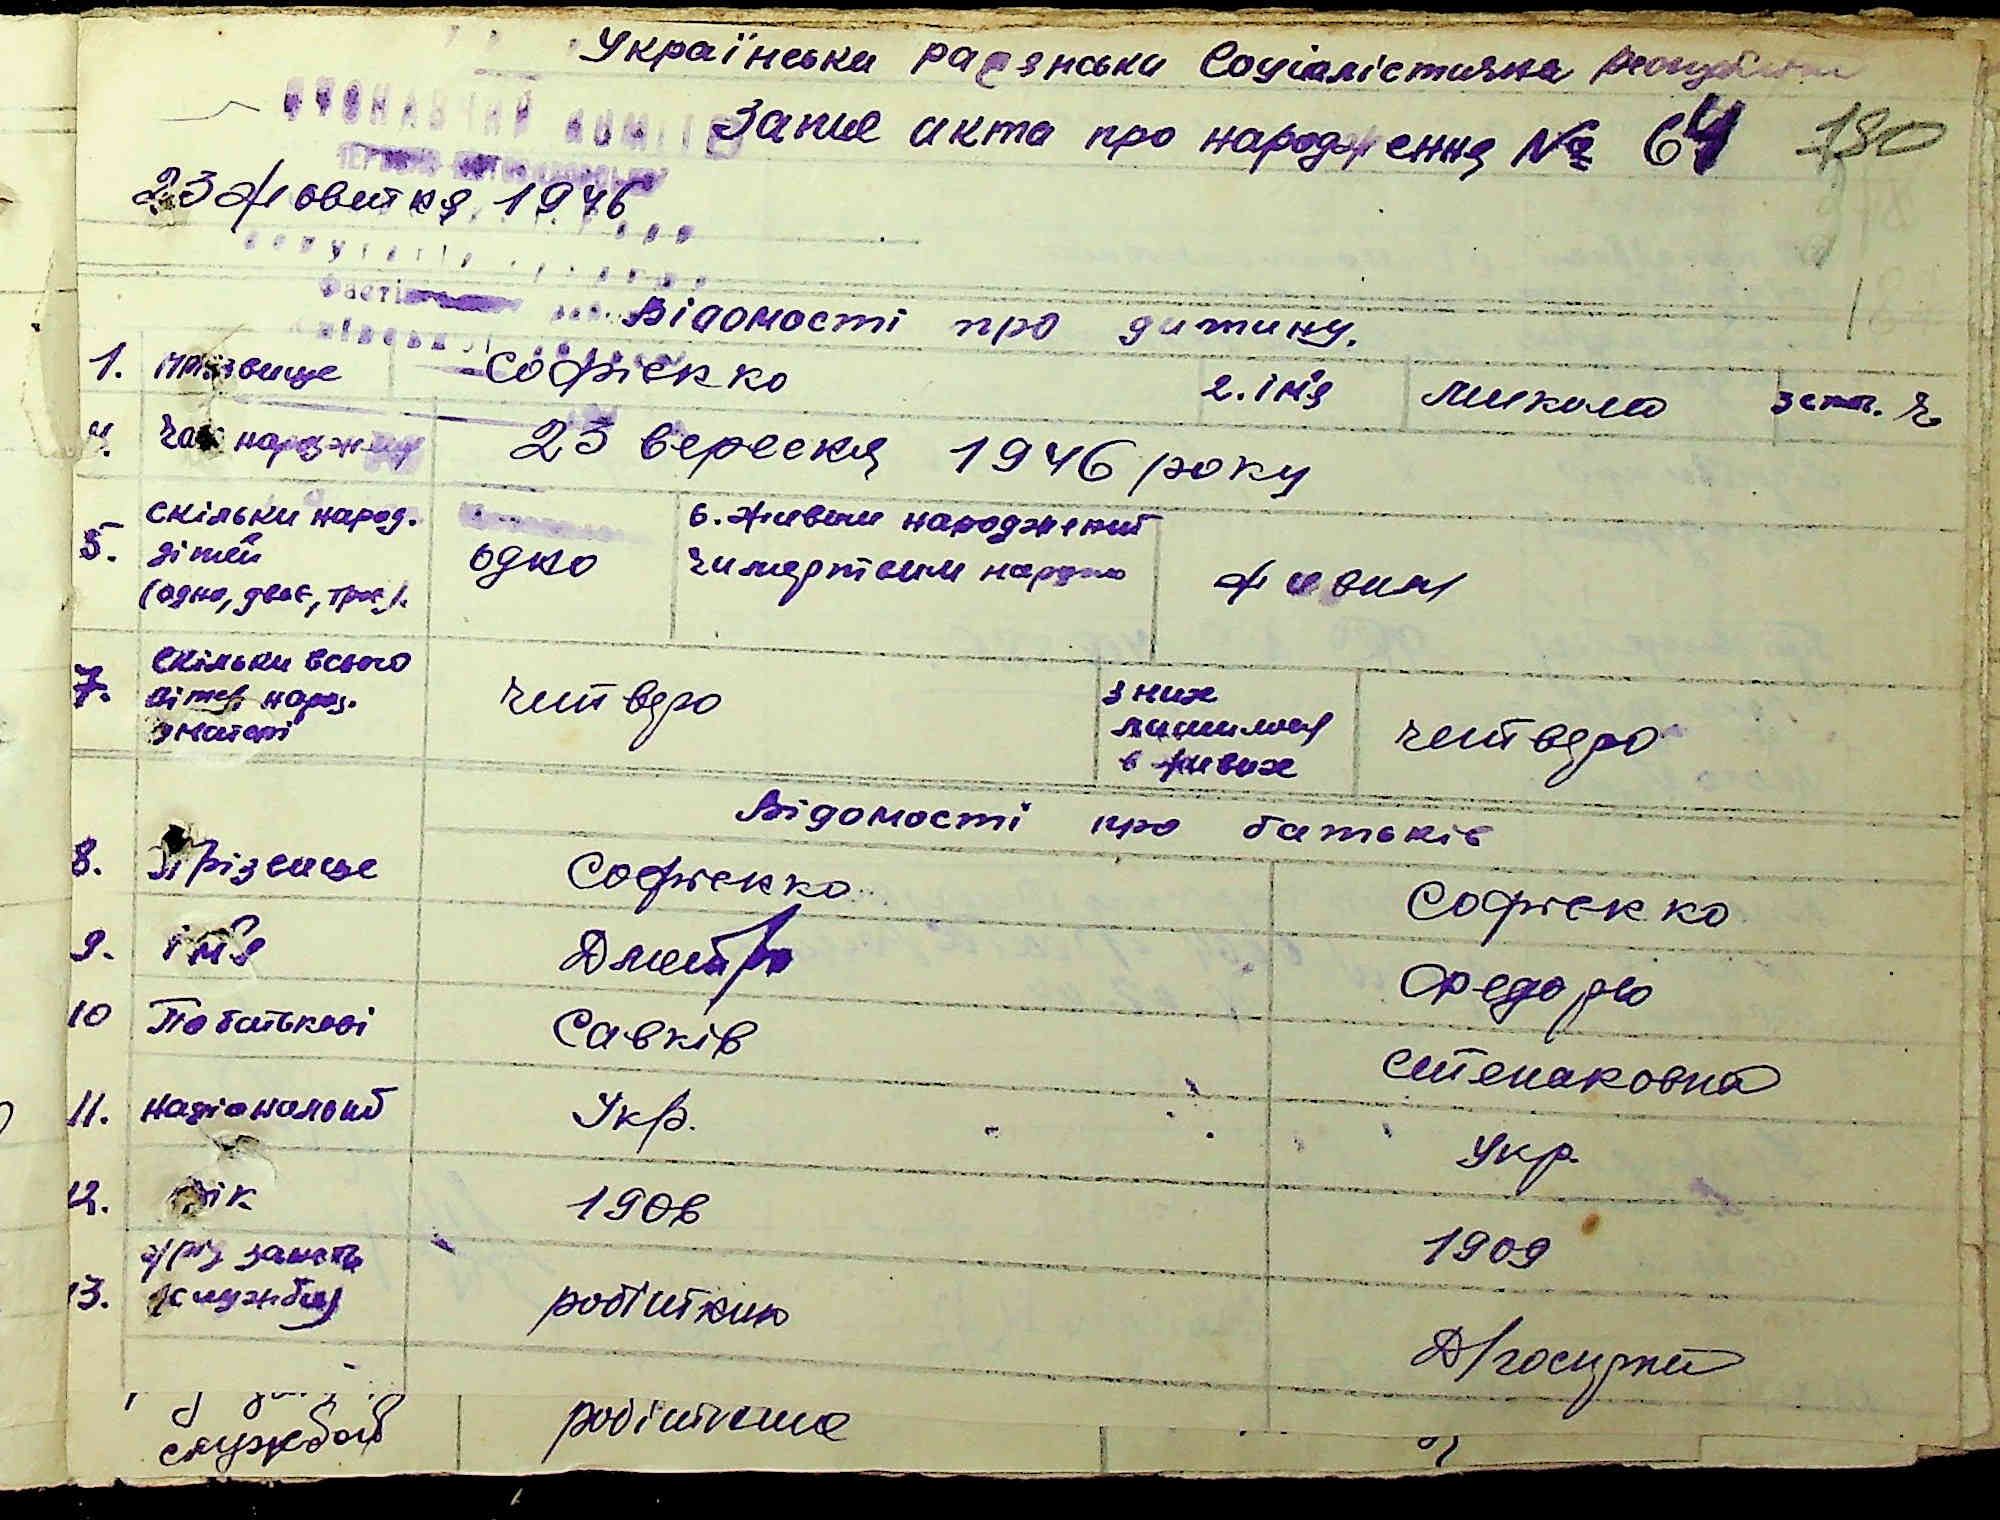 Українська радянська Соціалістична республіка
Запис акта про народження № 64 180
23 Жовтня 1946
Відомості про дитину.
1. прізвище Софієнко 2. ім'я Микола 3 стать. ч.
4. Час народження 23 вересня 1946 року
5. скільки народ. дітей (одно, двоє, троє). одно 6. живим народжений чи мертвим народж живим
7. скільки всього дітей народ. у матері четверо з них лишилося в живих четверо
Відомості про батьків
8. Прізвище Софієнко Софієнко
9. ім'я Дмитро Федора
10 По батькові Савків Степановна
11. національн Укр. Укр.
12. рік 1908 1909
13. служби робітник Д/госпит
службой робітника